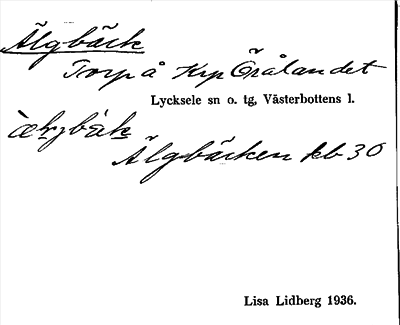 Älgbäck
Torp å Krp Örålandet
Lycksele sn o. tg, Västerbottens l.
Älgbäcken kb 30
Lisa Lidberg 1936.